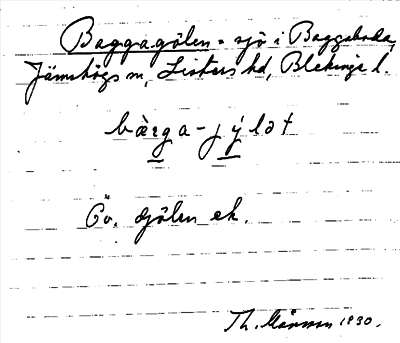 Baggagölen = sjö i Baggaboda,
Jämshögs sn, Listers hd, Blekinge l.
bàgga-jýlǝt
Öv. gölen ek.
Th. 1930.